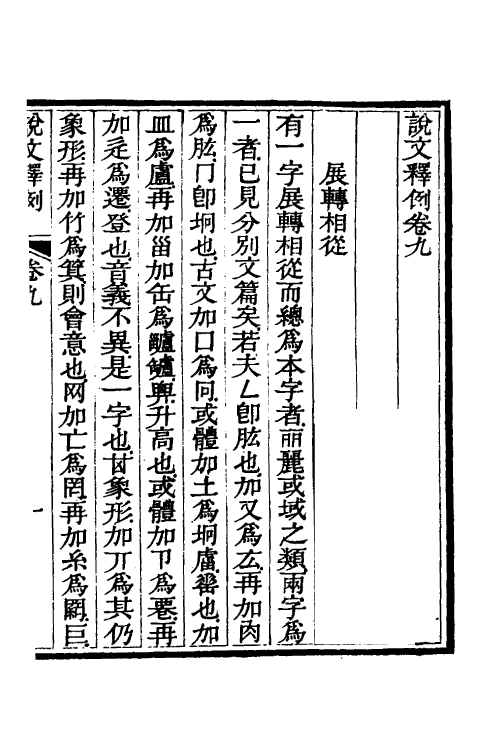 說文釋例卷九
展轉相從
有一字展轉相從而總爲本字者丽麗或域之類兩字爲
一者已見分別文篇矣若夫乚卽肱也加又爲厷再加肉
爲肱冂卽坰也古文加口爲冋或體加土爲坰𧆨罍也加
皿爲盧再加甾加缶爲𤮰罏𦥑升高也或體加卩爲䙴再
加辵爲遷登也音義不異是一字也𠀠象形加丌爲其仍
象形再加竹爲箕則會意也网加亡爲罔再加糸爲䋄巨
說文釋例
卷九
一